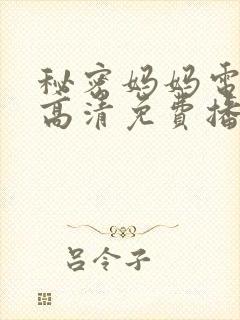 秘密妈妈电
高清免费播
吕令子